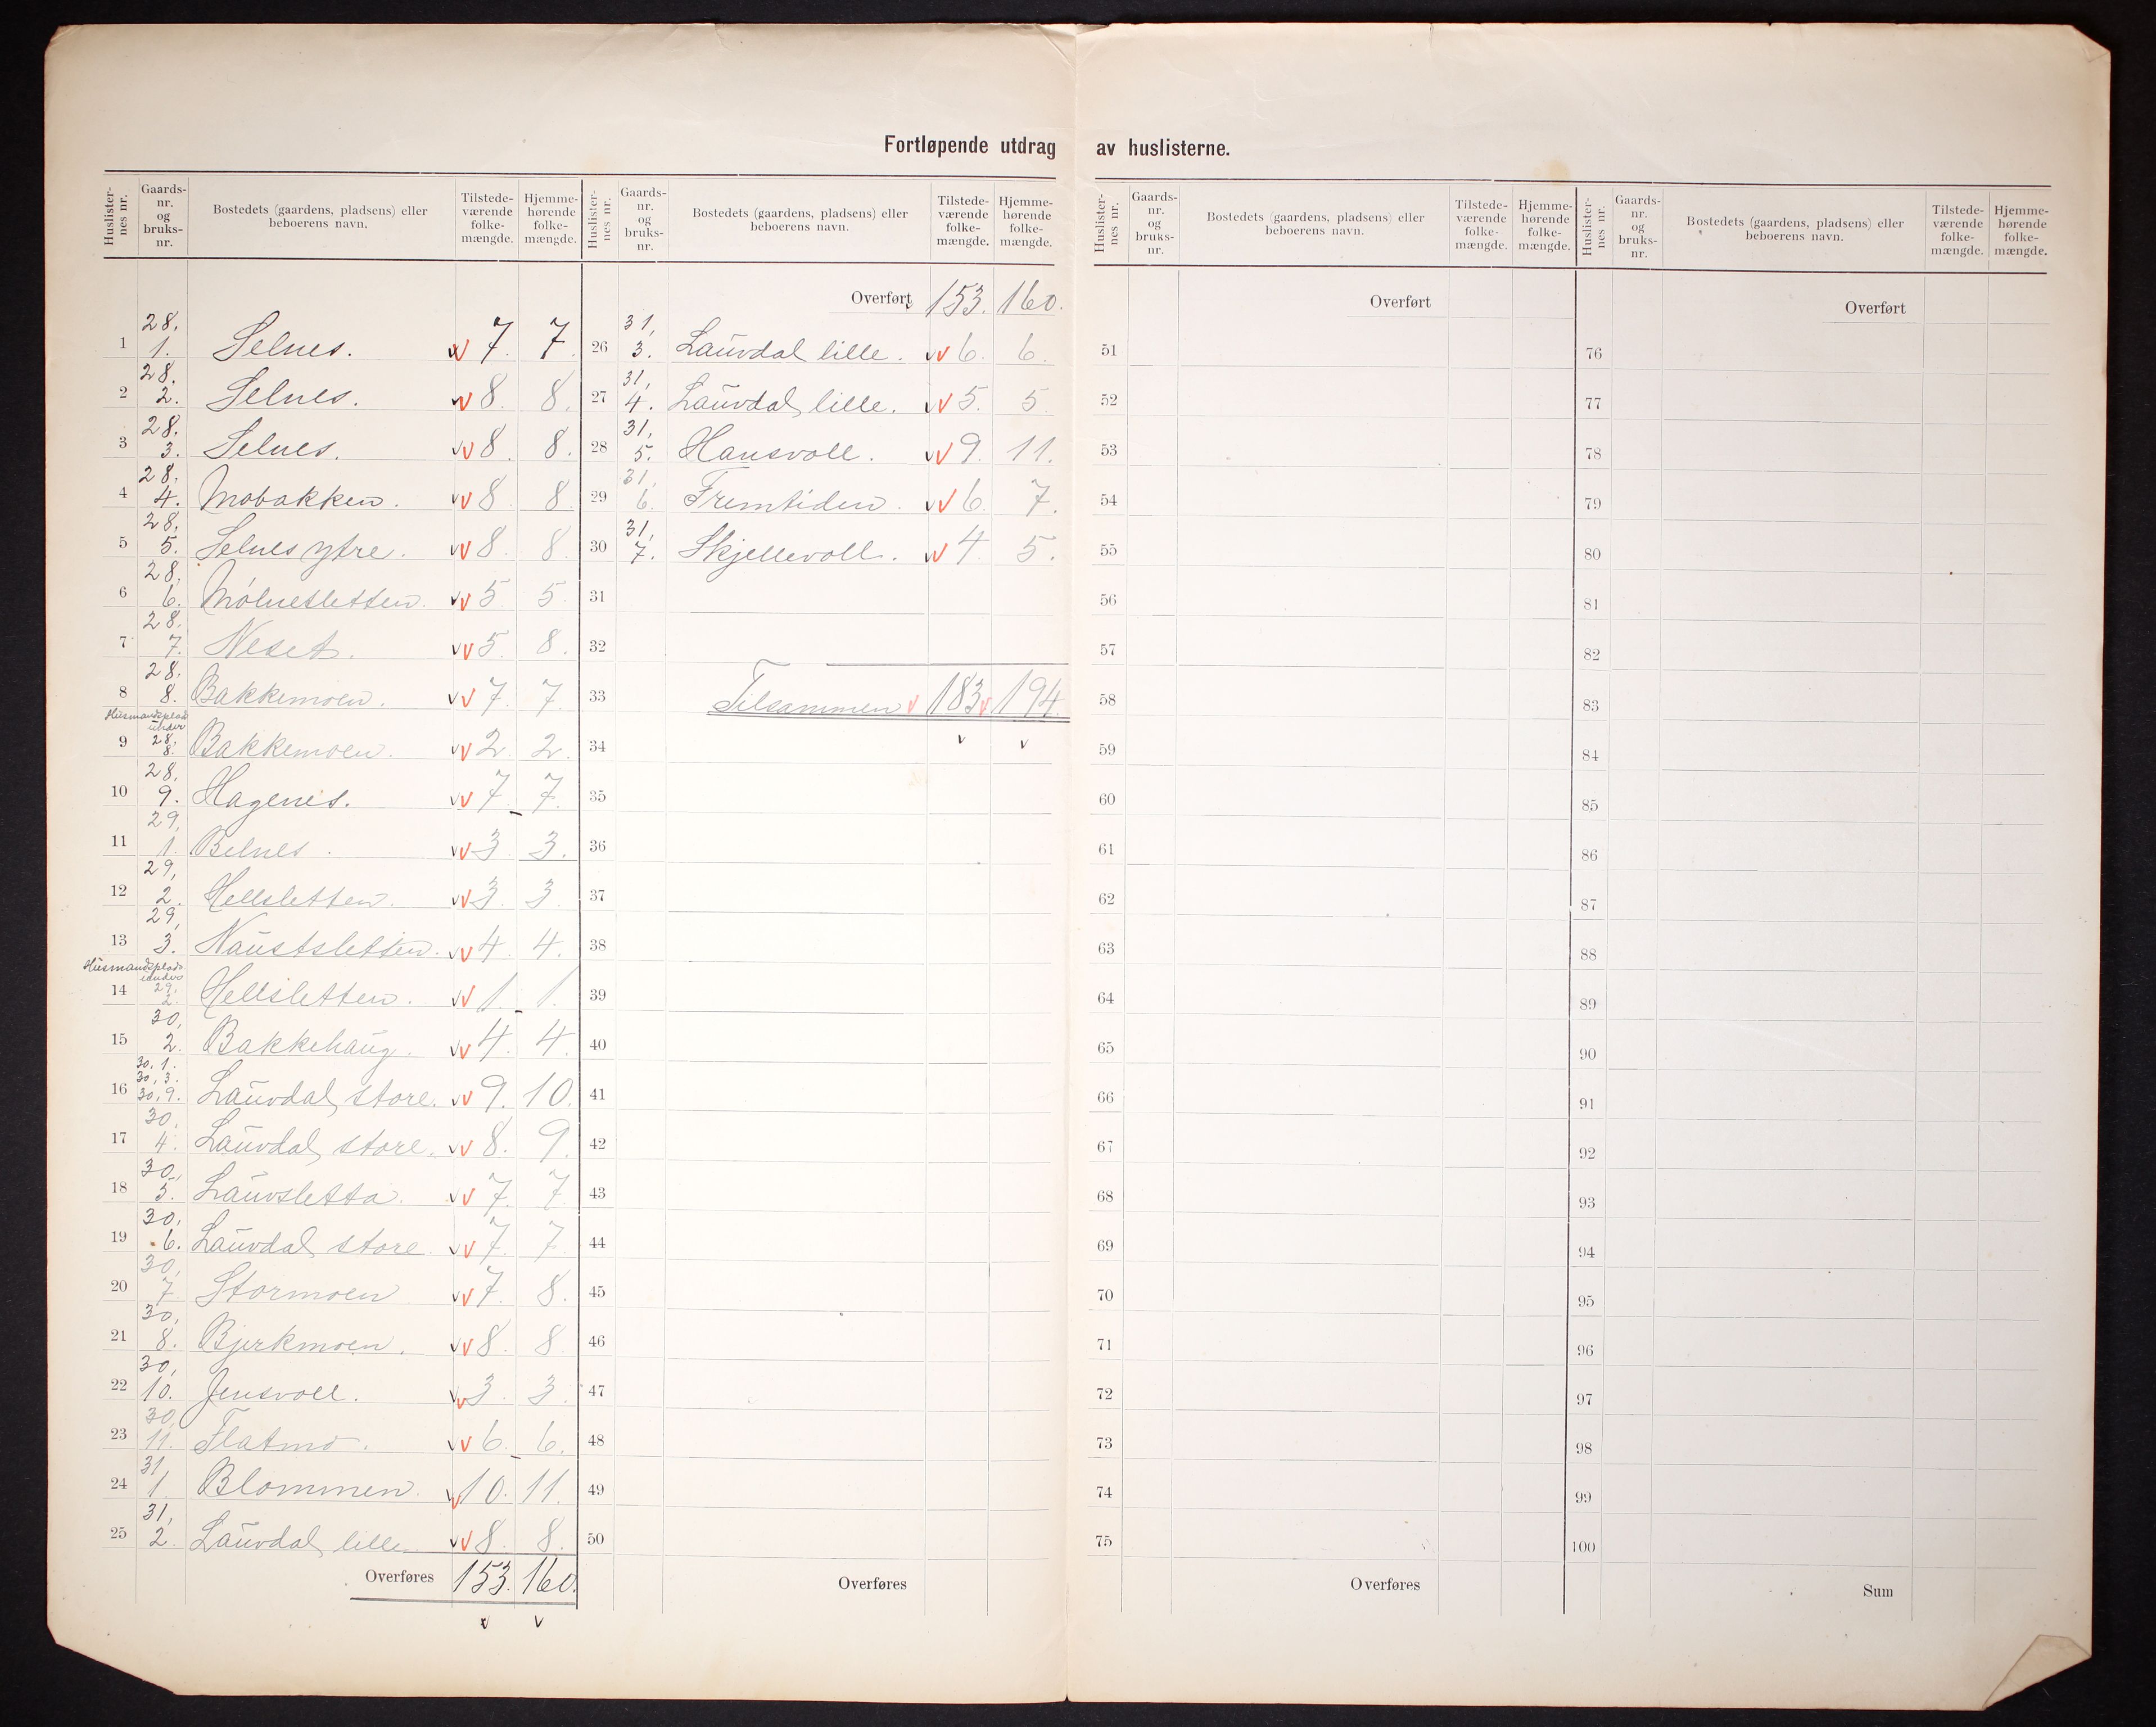 Fortløpende utdrag av huslisterne.
Huslister-nes nr. Gaards-nr. og bruks-nr. Bostedets (gaardens, pladsens) eller beboerens navn. Tilstede-værende folke-mængde. Hjemme-hørende folke-mængde.
1 28, 1. Selnes. 7. 7.
2 28. 2. Selnes. 8. 8.
3 28. 3. Selnes. 8. 8.
4 28. 4. Mobakken. 8 8
5 28. 5. Selnes ytre. 8. 8
6 28, 6. Mólnetsletten. 5 5.
7 28. 7. Neset. 5. 8.
8 28. 8. Bakkemoen. 7. 7.
Husmandsplads under
9 28, 8. Bakkemoen. 2. 2.
10 28, 9. Hagenes. 7. 7.
11 29, 1. Belnes. 3. 3.
12 29, 2. Hellsletten. 3. 3.
13 29, 3. Naustsletten. 4. 4.
Husmandsplads under
14 29, 2. Hellsletten. 1. 1.
15 30, 2. Bakkehaug. 4. 4.
16 30, 1. 30, 3. 30, 9. Lauvdal, store. 9. 10.
17 30, 4. Lauvdal, store. 8. 9.
18 30, 5. Lauvsletta. 7. 7.
19 30, 6. Lauvdal, store. 7. 7.
20 30, 7 Stormoen 7. 8.
21 30, 8. Bjerkmoen. 8. 8
22 30, 10. Jensvoll. 3. 3.
23 30, 11. Flatmo. 6. 6.
24 31, 1. Blommen. 10. 11.
25 31, 2. Lauvdal, lille. 8. 8.
Overføres 153. 160.
Huslister-nes nr. Gaards-nr. og bruks-nr. Bostedets (gaardens, pladsens) eller beboerens navn. Tilstede-værende folke-mængde. Hjemme-hørende folke-mængde.
Overført 153. 160.
26 31, 3. Lauvdal lille. 6. 6.
27 31, 4. Lauvdal, lille. 5. 5.
28 31, 5. Hansvoll. 9. 11.
29 31, 6. Fremtiden. 6. 7.
30 31, 7. Skjellevoll. 4. 5.
31
32
33 Tilsammen 183 194.
34
35
36
37
38
39
40
41
42
43
44
45
46
47
48
49
50
Overføres
Huslister-nes nr. Gaards-nr. og bruks-nr. Bostedets (gaardens, pladsens) eller beboerens navn. Tilstede-værende folke-mængde. Hjemme-hørende folke-mængde.
Overført
51
52
53
54
55
56
57
58
59
60
61
62
63
64
65
66
67
68
69
70
71
72
73
74
75
Overføres
Huslister-nes nr. Gaards-nr. og bruks-nr. Bostedets (gaardens, pladsens) eller beboerens navn. Tilstede-værende folke-mængde. Hjemme-hørende folke-mængde.
Overført
76
77
78
79
80
81
82
83
84
85
86
87
88
89
90
91
92
93
94
95
96
97
98
99
100
Sum